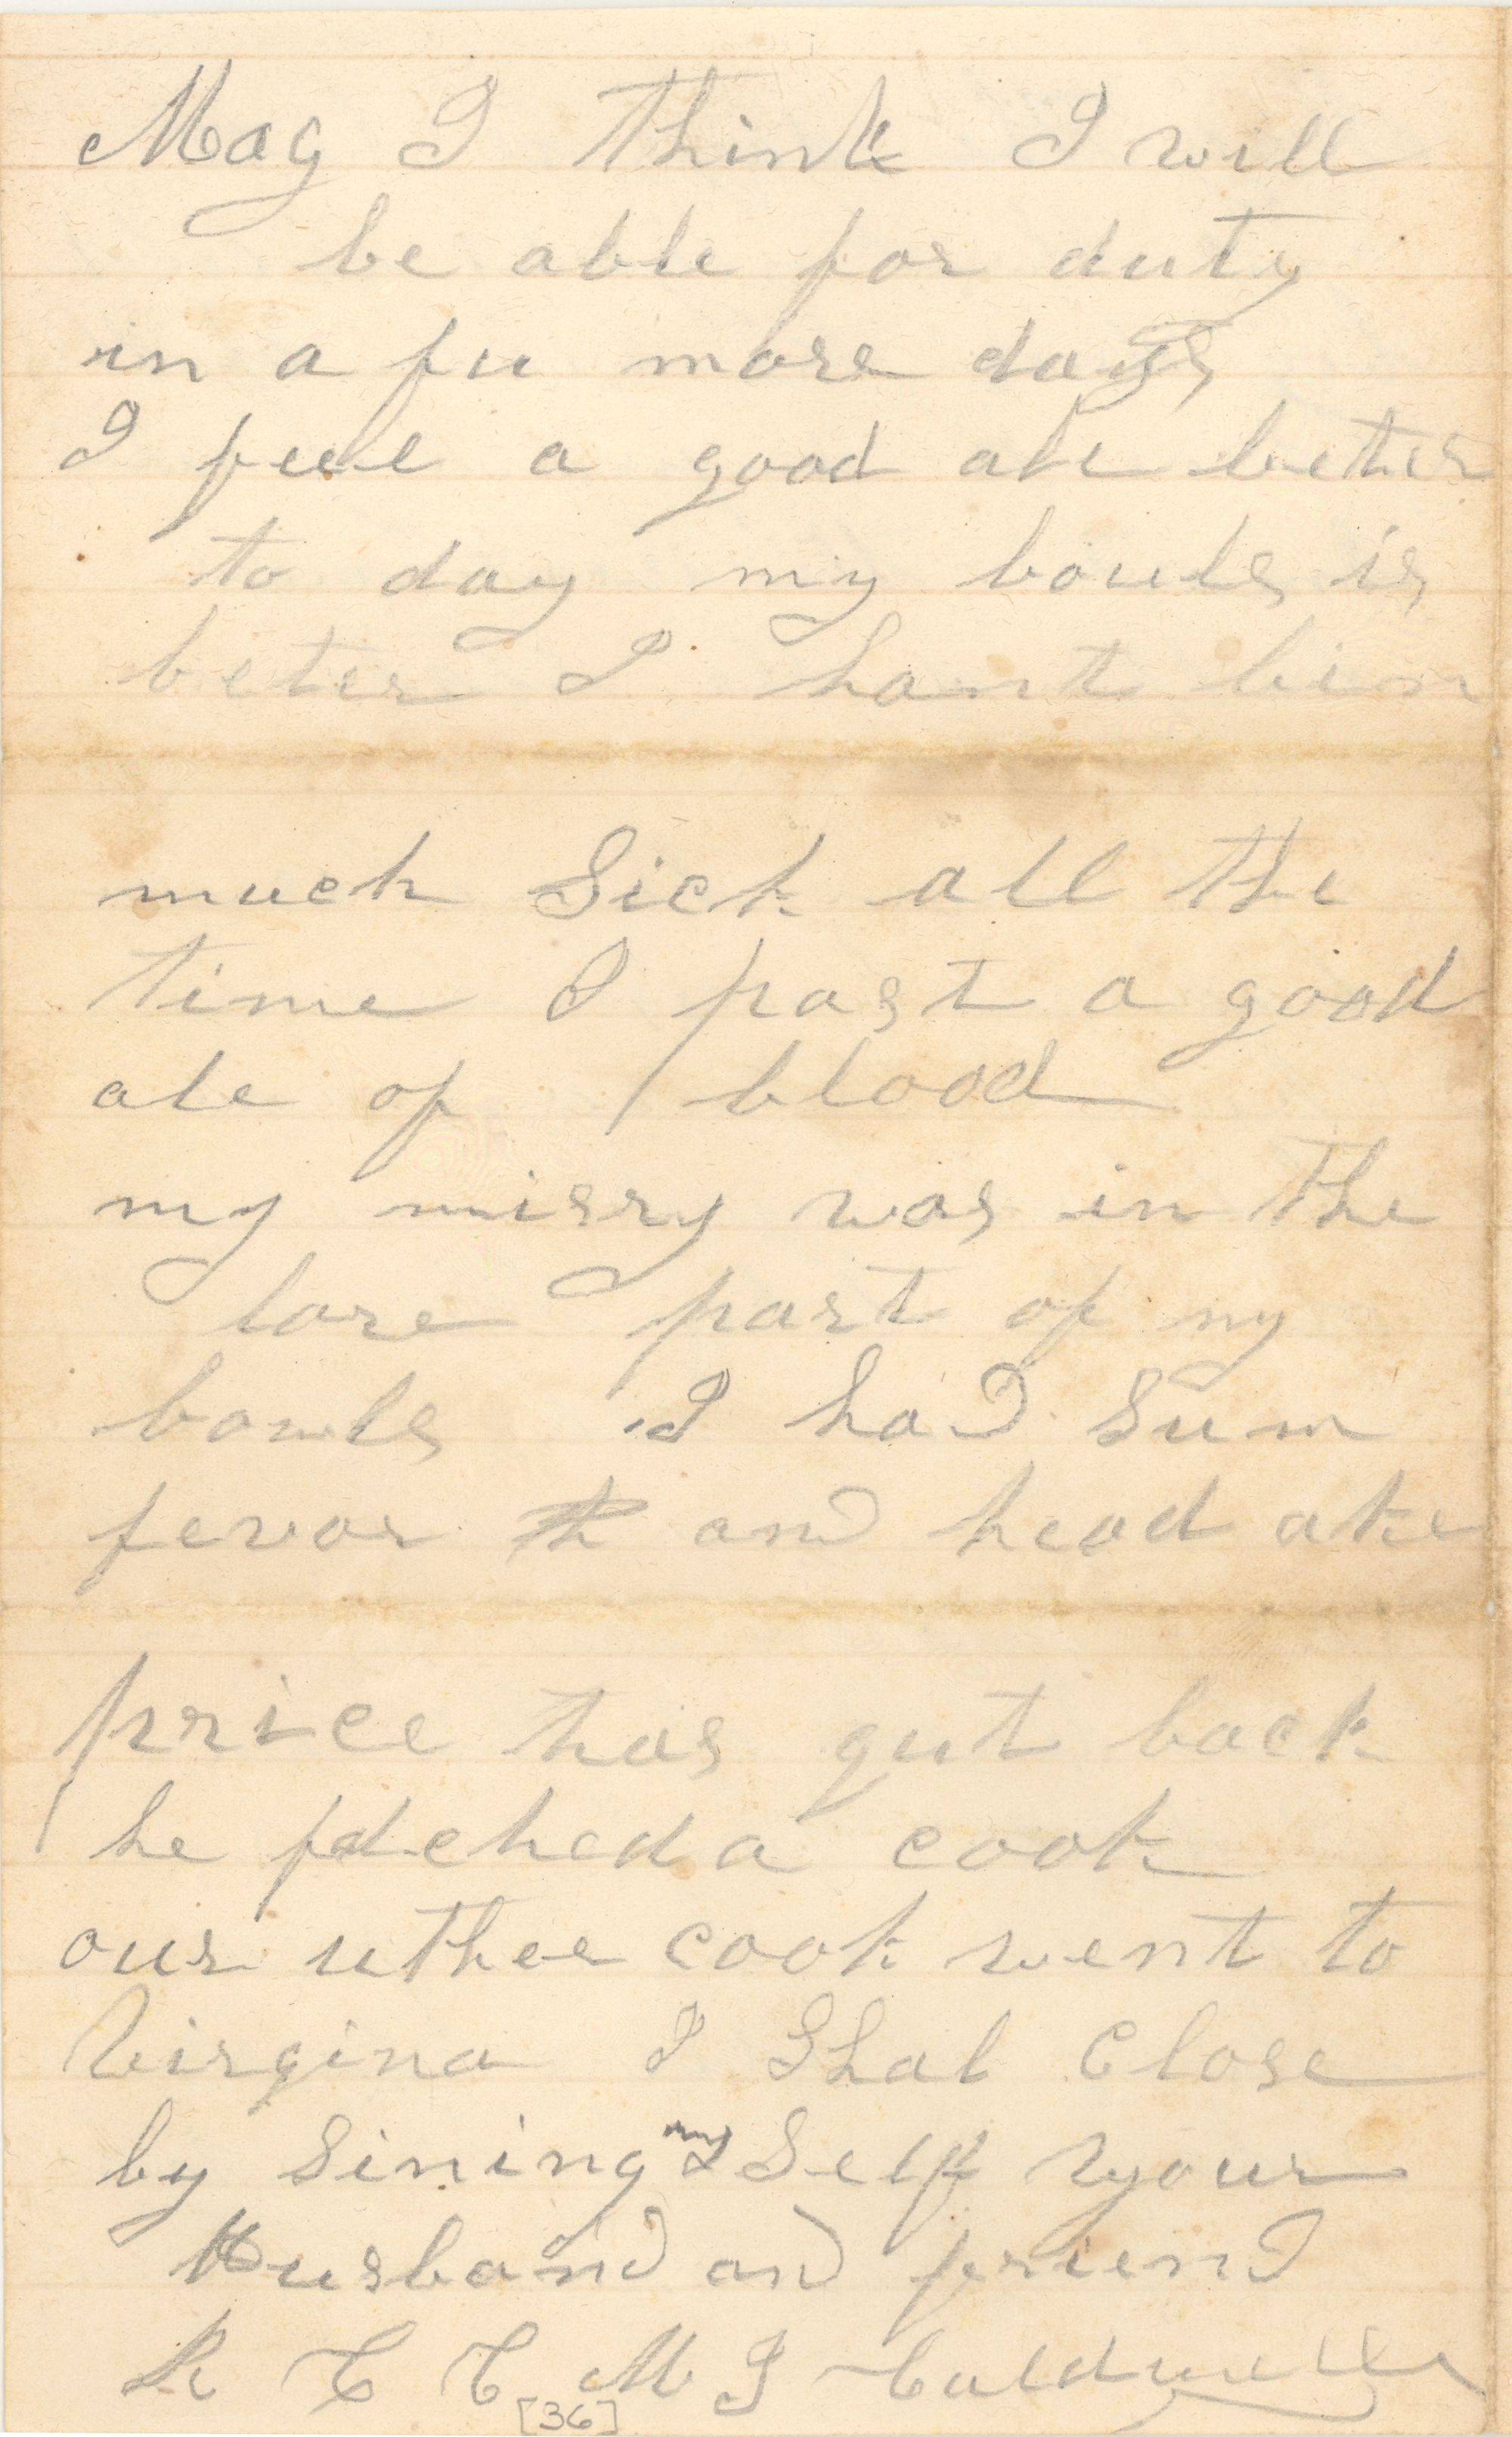 Mag I think I will
be able for duty
in a fu more days
I feel a good ale beter
to day my bouels is
beter I hant bin
much Sick all the
time I past a good
ale of blood
my misry was in the
lore part of my
bowls I had Sum
fevor and head ake
price has gut back
he fetched a cook
our uther cook went to
Virgina I Shal Close
by Sining my Self your
Husband and friend
R C C M G Caldwell
[36]